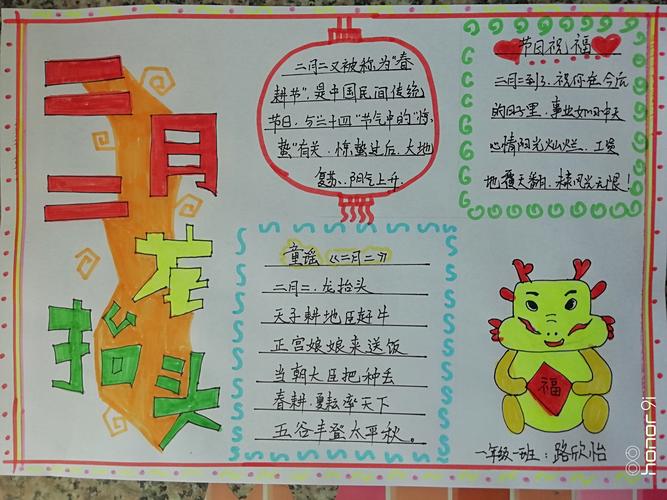 二月二
花抬头
二月二又被称为"春
耕节",是中国民间传统
节日,与二十四"节气中的"惊
蛰"有关.惊蛰过后.大地
复苏、阳气上升.
节日祝福
二月二到了,祝你在今后
的日子里,事业如日中天
心情阳光灿烂、工资
地覆天翻、未来风光无限!
童谣《二月二》
二月二.龙抬头
天子耕地臣赶牛
正宫娘娘来送饭
当朝大臣把种丢
春耕.夏耘率天下
五谷丰登太平秋。
福
一年级一班:路欣怡
honor 9i